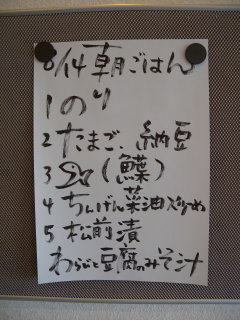 6/14 朝ごはん
1 のり
2 たまご、納豆
3 (鰈)
4 ちんげん菜油炒め
5 松前漬
わらびと豆腐のみそ汁